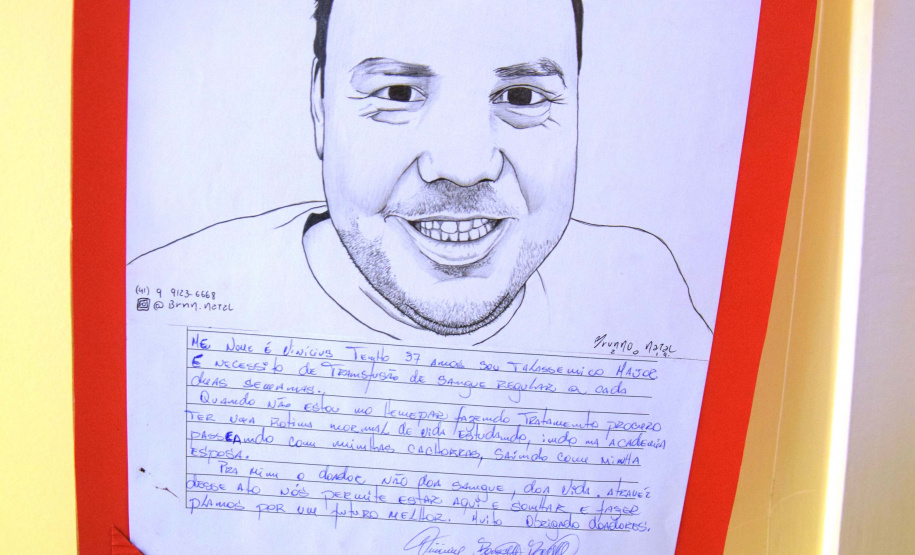 (41) 9 9123-6668
@Brnn.natal
Brunno Natal
Meu Nome é Vinicius Tenho 37 anos sou Talassemico Major
E necessito de Transfusão de sangue regular a cada
duas semanas.
Quando não estou no Hemepar fazendo tratamento procuro
ter uma rotina normal de vida estudando, indo na academia
passeando com minhas cachorras, saindo com minha
esposa.
Pra mim o doador, não doa sangue, doa vida, através
desse ato nós permite estar aqui e sonhar e fazer
planos por um futuro melhor. Muito Obrigado doadores.